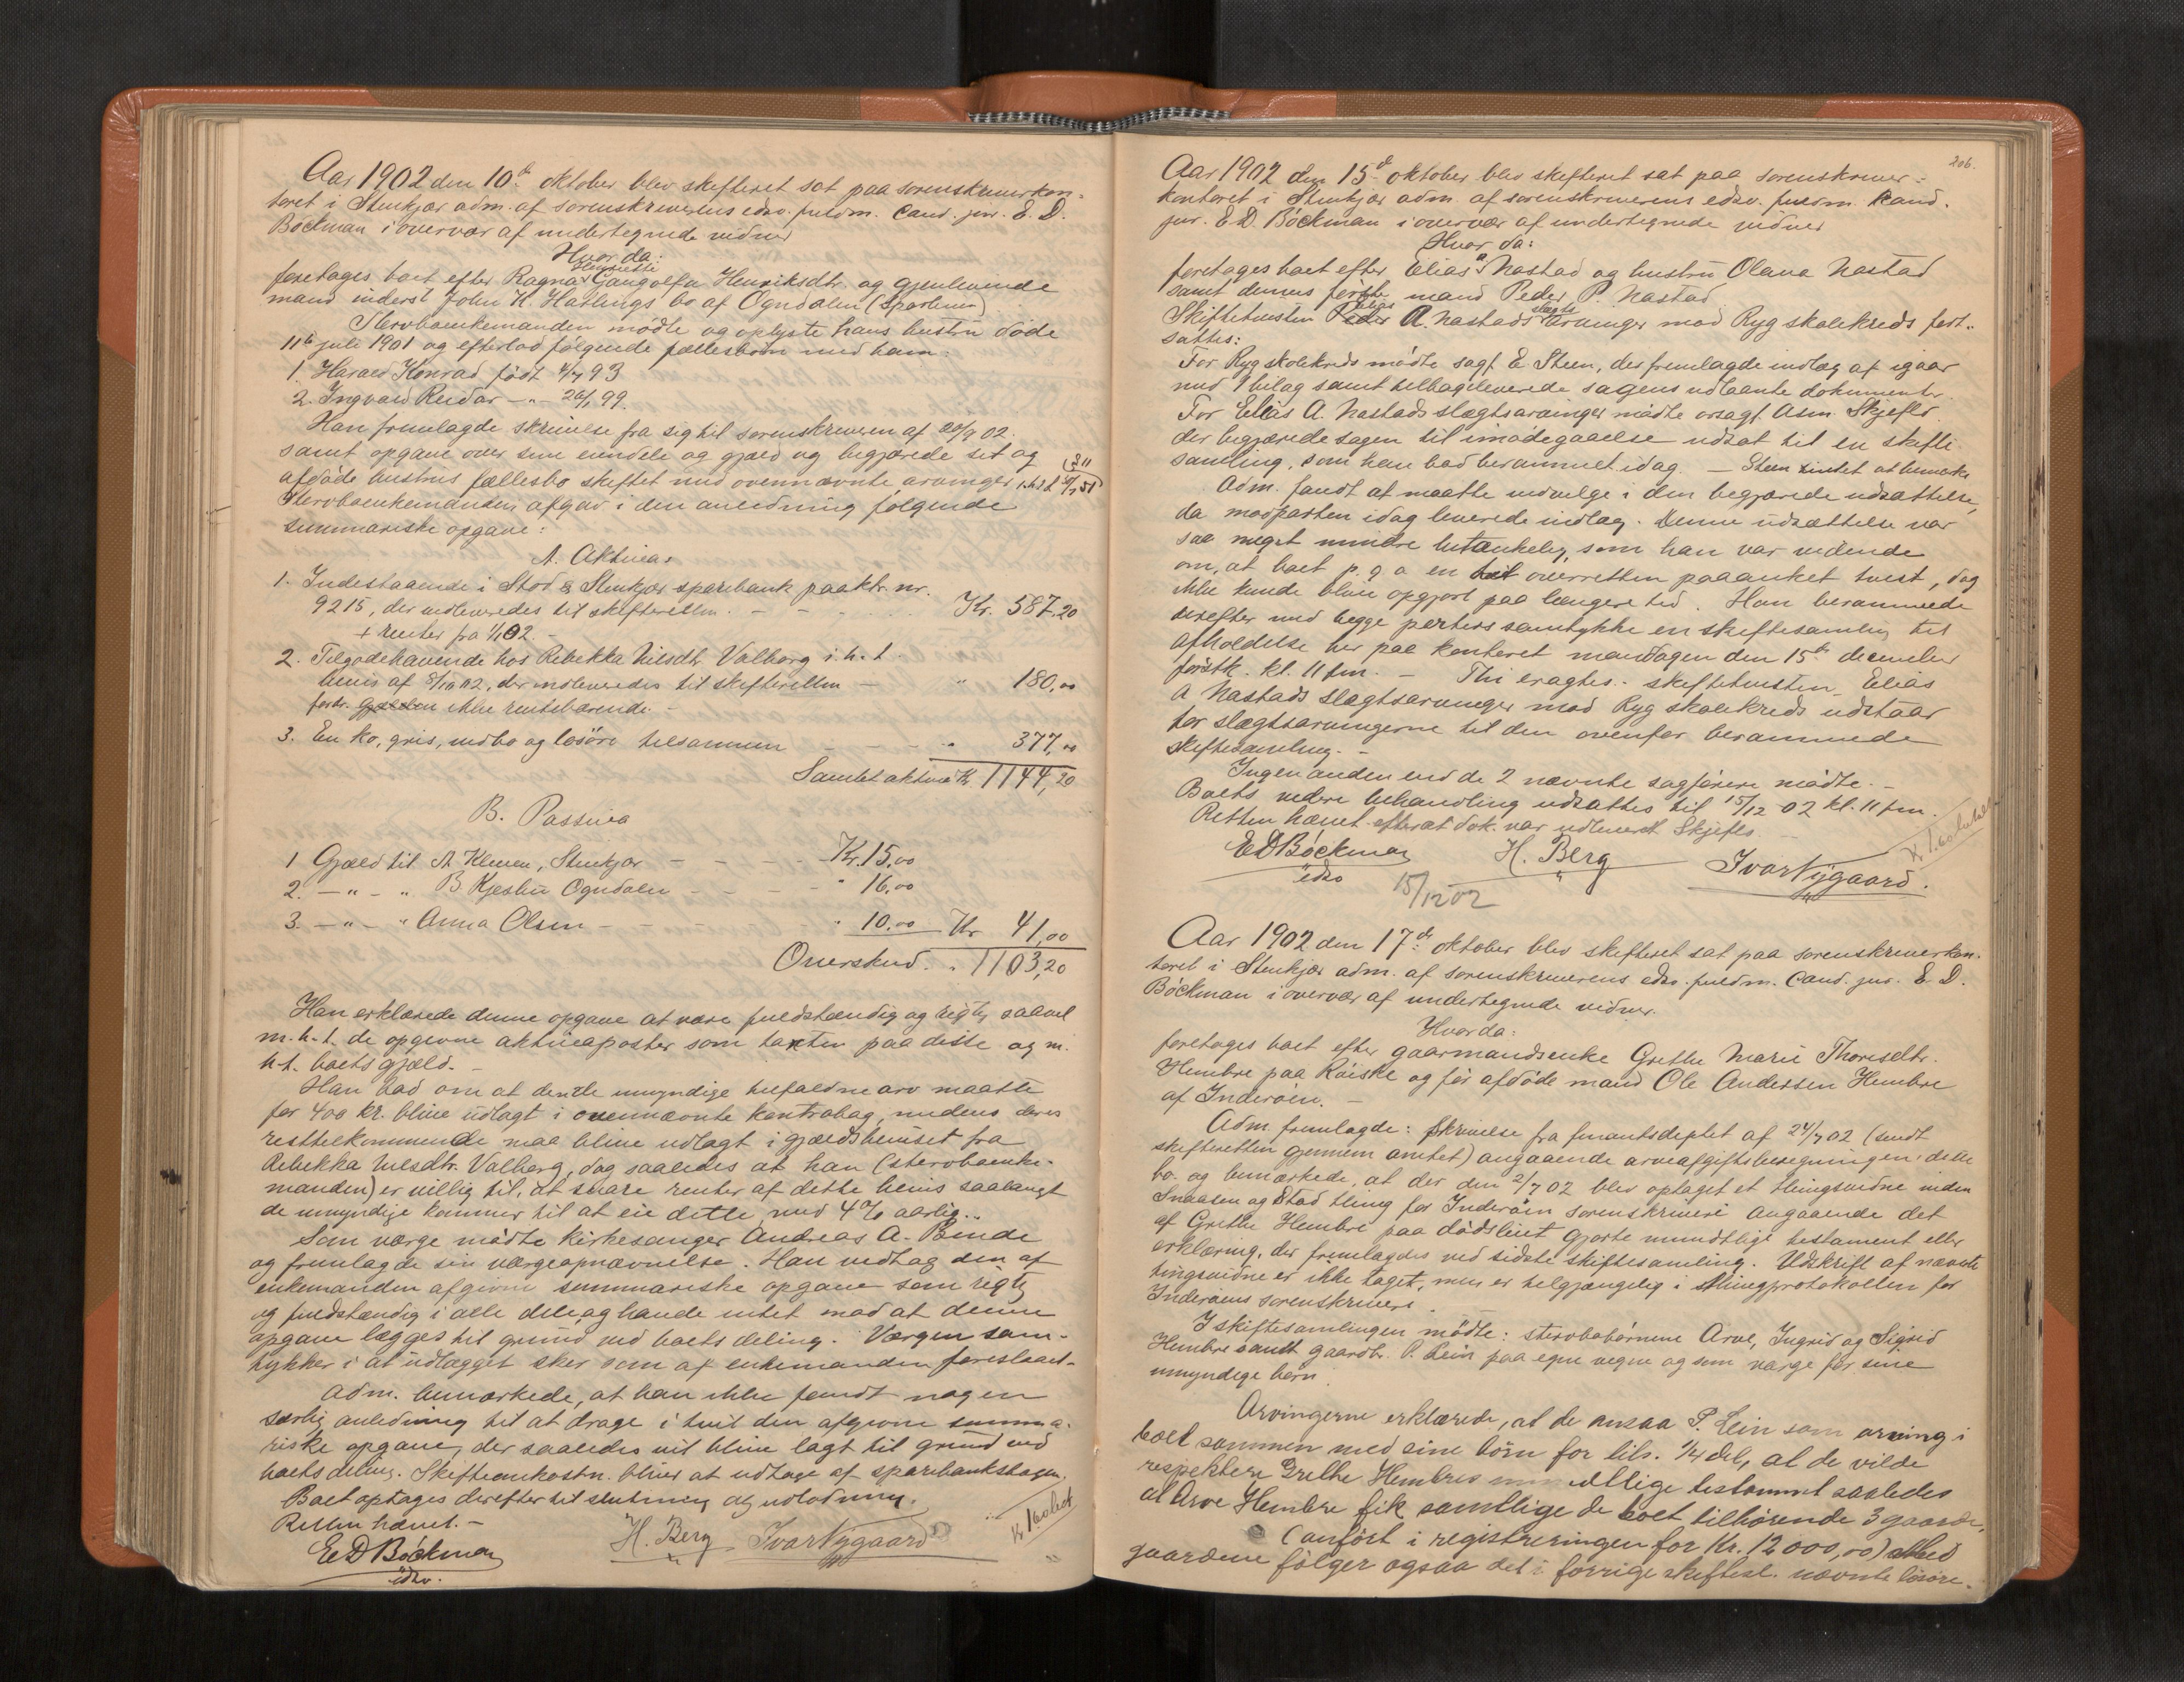 Aar 1902 den 10de oktober blev skifteret sat paa sorenskriverkon-
toret i Stenkjær adm. af sorenskriverens edsv. fuldm. Cand. jur. E. D.
Böckman i overvær af undertegnede vidner
Hvor da:
Henriette
foretages boet efter Ragna Gangolfa Henriksdtr. og gjenlevende
mand inderst John H. Hallings bo af Ogndalen (Sparbuen)
Stervboenkemanden mødte og oplyste hans hustru døde
11te juli 1901 og efterlod følgende fællesbørn med ham:
1. Harald Konrad født 4/7 93
2. Ingvald Reidar —"— 20/1 99.
Han fremlagde skrivelse fra sig til sorenskriveren af 20/9 02.
samt opgave over sine eiendele og gjæld og begjærede sit og
afdøde hustrus fællesbo skiftet med ovennævnte arvinger
Stervboenkemanden afgav i den anledning følgende
summariske opgave:
A. Aktiva:
1. Indestaaende i Stod & Stenkjær sparebank paa ktr. nr.
9215, der indleveredes til skifteretten. — — Kr. 587,20
+ renter fra 1/1 02. —
2. Tilgodehavende hos Rebekka Nilsdtr. Valberg i. h. t.
bevis af 8/10 02, der indleveredes til skifteretten — " 180,00
fordr. ikke rentebærende. —
3. En ko, gris, indbo og løsøre tilsammen — — — " 377,00
Samlet aktiva Kr. 1144,20
B. Passiva
1 Gjæld til A. Kleven, Stenkjær — — — Kr. 15,00
2. —"— " B. Kjesbu Ogndalen — — — " 16,00
3. —"— " Anna Olsen — — — " 10,00 Kr. 41,00
Overskud. " 1103,20
Han erklærede denne opgave at være fuldstændig og rigtig saavel
m. h. t. de opgivne aktivaposter som taxten paa disse og m.
h. t. boets gjæld. —
Han bad om at den de umyndige tilfaldne arv maatte
for 400 kr. blive udlagt i ovennævnte kontrabog, medens deres
resttilkommende maa blive udlagt i gjældsbeviset fra
Rebekka Nilsdtr. Valberg, dog saaledes at han (stervboenke-
manden) er villig til, at svare renter af dette bevis saalangt
de umyndige kommer til at eie dette, med 4 % aarlig. —
Som værge mødte kirkesanger Andreas A. Binde
og fremlagde sin værgeopnævnelse. Han vedtog den af
enkemanden afgivne summariske opgave som rigtig
og fuldstændig i alle dele og havde intet mod at denne
opgave lægges til grund ved boets deling. Værgen sam-
tykker i at udlægget sker som af enkemanden foreslaaet. —
Adm. bemærkede, at han ikke fandt nogen
særlig anledning til at drage i tvil den afgivne summa-
riske opgave, der saaledes vil blive lagt til grund ved
boets deling. Skifteomkostn. bliver at udtage af sparebanksbogen.
Boet optages derefter til slutning og udlodning.
Retten hævet. —
E D Böckman H. Berg Ivar Nygaard
edsv.
206.
Aar 1902 den 15de oktober blev skifteret sat paa sorenskriver-
kontoret i Stenkjær adm. af sorenskriverens edsv. fuldm. Kand.
jur. E D. Böckman i overvær af undertegnede vidner
Hvor da:
foretages boet efter Elias A. Nastad og hustru Olava Nastad
samt dennes første mand Peder P. Nastad.
Elias slægts
Skiftetvisten Peder A. Nastads arvinger mod Ryg skolekreds fort-
sattes:
For Ryg skolekreds mødte sagf. E Steen, der fremlagde indlæg af igaar
med 1 bilag samt tilbageleverede sagens udlaante dokumenter.
For Elias A. Nastads slægtsarvinger mødte orsagf. Asm. Skjeflo
der begjærede sagen til imødegaaelse udsat til en skifte-
samling, som han bad berammet idag. — Steen intet at bemærke
Adm. fandt at maatte indvilge i den begjærede udsættelse,
da modparten idag leverede indlæg. Denne udsættelse var
saa meget mindre betænkelig, som han var vidende
om, at boet p. g. a. en til overretten paaanket tvist, dog
ikke kunde blive opgjort paa længere tid. Han berammede
derefter med begge parters samtykke en skiftesamling til
afholdelse her paa kontoret mandagen den 15de december
førstk. kl. 11 fm. — Thi eragtes: skiftetvisten Elias
A Nastads slægtsarvinger mod Ryg skolekreds udstaar
for slægtsarvingerne til den ovenfor berammede
skiftesamling. —
Ingen anden end de 2 nævnte sagførere mødte. —
Boets videre behandling udsattes til 15/12 02 kl. 11 fm.
Retten hævet efterat dok. var udleveret Skjeflo.
E D Böckman H. Berg Ivar Nygaard.
edsv
15/12 02
Aar 1902 den 17de oktober blev skifteret sat paa sorenskriverkon-
toret i Stenkjær adm. af sorenskriverens edsv. fuldm. Cand. jur. E. D.
Böckman i overvær af undertegnede vidner.
Hvor da:
foretages boet efter gaarmandsenke Grethe Marie Thorisdtr.
Hembre paa Røiske og før afdøde mand Ole Andersen Hembre
af Inderøen. —
Adm. fremlagde: Skrivelse fra finantsdeptet af 24/7 02 (sendt
skifteretten gjennem amtet) angaaende arveafgiftsberegningen i dette
bo. og bemærkede, at der den 2/7 02 blev optaget et thingsvidne inden
Snaasen og Stod thing for Inderøen sorenskriveri angaaende det
af Grethe Hembre paa dødsleiet gjorte mundtlige testament eller
erklæring, der fremlagdes ved sidste skiftesamling. Udskrift af nævnte
tingsvidne er ikke taget, men er tilgjængelig i thingprotokollen for
Inderøens sorenskriveri.
I skiftesamlingen mødte: stervbobørnene Arve, Ingrid og Sigrid
Hembre samt gaardbr. P. Lein paa egne vegne og som værge for sine
umyndige børn.
Arvingerne erklærede, at de ansaa P. Lein som arving i
boet sammen med sine børn for tils. 1/4 del, at de vilde
respektere Grethe Hembres mundtlige testament saaledes
at Arve Hembre fik samtlige de boet tilhørende 3 gaarde,
(anført i registreringen for Kr. 12 000,00) Med
gaardene følger ogsaa det i forrige skiftesl. nævnte løsøre.